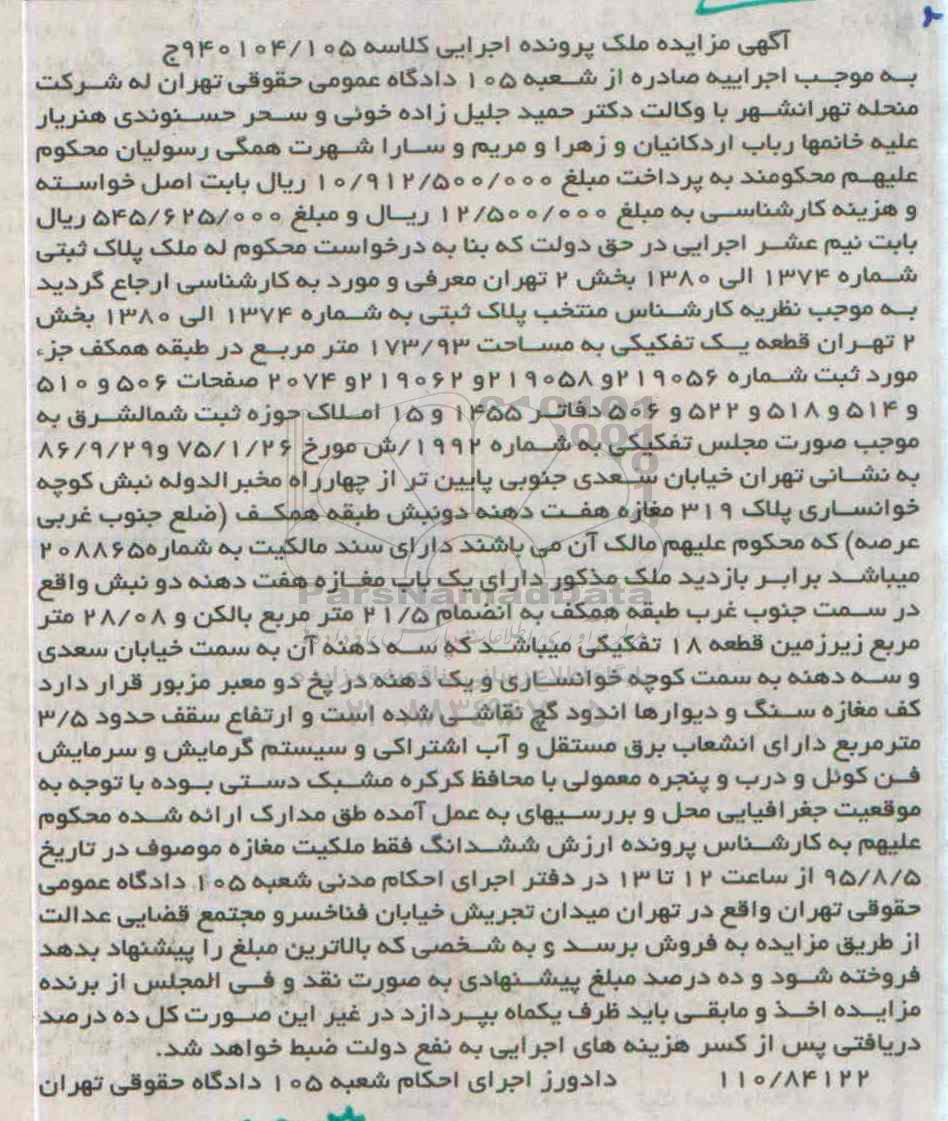 آگهی مزایده ملک پرونده اجرایی کلاسه ۹۴۰۱۰۴/۱۰۵ج
به موجب اجراییه صادره از شعبه ۱۰۵ دادگاه عمومی حقوقی تهران له شرکت
منحله تهرانشهر با وکالت دکتر حمید جلیل زاده خوئی و سحر حسنوندی هنریار
علیه خانمها رباب اردکانیان و زهرا و مریم و سارا شهرت همگی رسولیان محکوم
علیهم محکومند به پرداخت مبلغ ۱۰/۹۱۲/۵۰۰/۰۰۰ ریال بابت اصل خواسته
و هزینه کارشناسی به مبلغ ۱۲/۵۰۰/۰۰۰ ریال و مبلغ ۵۴۵/۶۲۵/۰۰۰ ریال
بابت نیم عشر اجرایی در حق دولت که بنا به درخواست محکوم له ملک پلاک ثبتی
شماره ۱۳۷۴ الی ۱۳۸۰ بخش ۲ تهران معرفی و مورد به کارشناسی ارجاع گردید
به موجب نظریه کارشناس منتخب پلاک ثبتی به شماره ۱۳۷۴ الی ۱۳۸۰ بخش
۲ تهران قطعه یک تفکیکی به مساحت ۱۷۳/۹۳ متر مربع در طبقه همکف جزء
مورد ثبت شماره ۲۱۹۰۵۶و ۲۱۹۰۵۸و ۲۱۹۰۶۲و ۲۰۷۴ صفحات ۵۰۶ و ۵۱۰
و ۵۱۴ و ۵۱۸ و ۵۲۲ و ۵۰۶ دفاتر ۱۴۵۵ و ۱۵ املاک حوزه ثبت شمالشرق به
موجب صورت مجلس تفکیکی به شماره ۱۹۹۲/ش مورخ ۷۵/۱/۲۶ و۸۶/۹/۲۹
به نشانی تهران خیابان سعدی جنوبی پایین تر از چهارراه مخبرالدوله نبش کوچه
خوانساری پلاک ۳۱۹ مغازه هفت دهنه دونبش طبقه همکف (ضلع جنوب غربی
عرصه) که محکوم علیهم مالک آن می باشند دارای سند مالکیت به شماره۲۰۸۸۶۵
میباشد برابر بازدید ملک مذکور دارای یک باب مغازه هفت دهنه دو نبش واقع
در سمت جنوب غرب طبقه همکف به انضمام ۲۱/۵ متر مربع بالکن و ۲۸/۰۸ متر
مربع زیرزمین قطعه ۱۸ تفکیکی میباشد که سه دهنه آن به سمت خیابان سعدی
و سه دهنه به سمت کوچه خوانساری و یک دهنه در پخ دو معبر مزبور قرار دارد
کف مغازه سنگ و دیوارها اندود گچ نقاشی شده است و ارتفاع سقف حدود ۳/۵
مترمربع دارای انشعاب برق مستقل و آب اشتراکی و سیستم گرمایش و سرمایش
فن کوئل و درب و پنجره معمولی با محافظ کرکره مشبک دستی بوده با توجه به
موقعیت جغرافیایی محل و بررسیهای به عمل آمده طق مدارک ارائه شده محکوم
علیهم به کارشناس پرونده ارزش ششدانگ فقط ملکیت مغازه موصوف در تاریخ
۹۵/۸/۵ از ساعت ۱۲ تا ۱۳ در دفتر اجرای احکام مدنی شعبه ۱۰۵ دادگاه عمومی
حقوقی تهران واقع در تهران میدان تجریش خیابان فناخسرو مجتمع قضایی عدالت
از طریق مزایده به فروش برسد و به شخصی که بالاترین مبلغ را پیشنهاد بدهد
فروخته شود و ده درصد مبلغ پیشنهادی به صورت نقد و فی المجلس از برنده
مزایده اخذ و مابقی باید ظرف یکماه بپردازد در غیر این صورت کل ده درصد
دریافتی پس از کسر هزینه های اجرایی به نفع دولت ضبط خواهد شد.
۱۱۰/۸۴۱۲۲ دادورز اجرای احکام شعبه ۱۰۵ دادگاه حقوقی تهران
ParsNamadData